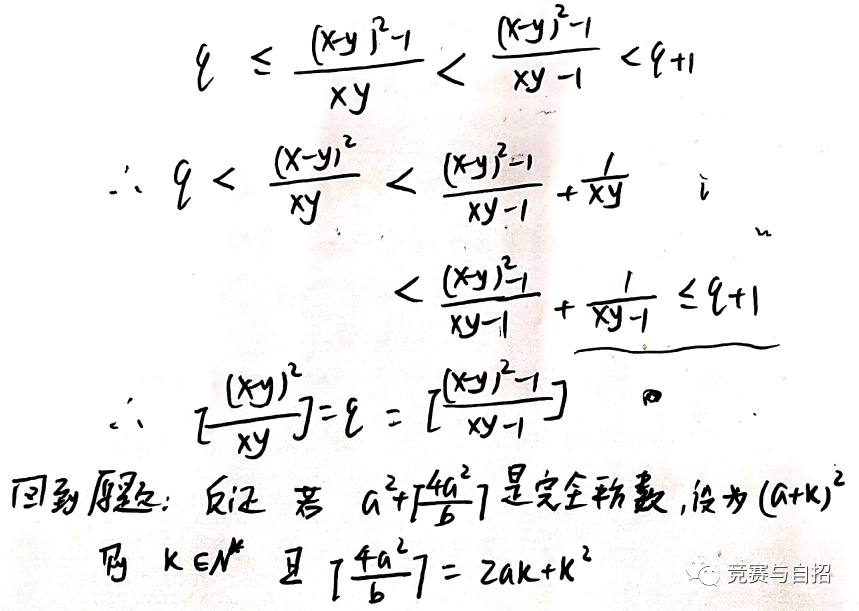 q ≤ \frac{(x-y)^2-1}{xy} < \frac{(x-y)^2-1}{xy-1} < q+1
∴ q < \frac{(x-y)^2}{xy} < \frac{(x-y)^2-1}{xy-1} + \frac{1}{xy}
< \frac{(x-y)^2-1}{xy-1} + \frac{1}{xy-1} ≤ q+1
∴ [\frac{(x-y)^2}{xy}] = q = [\frac{(x-y)^2-1}{xy-1}]
回到原题: 反证 若 a^2+⌈\frac{4a^2}{b}⌉是完全平方数,设为(a+k)^2
则 k∈N* 且 ⌈\frac{4a^2}{b}⌉ = 2ak+k^2
竞赛与自招